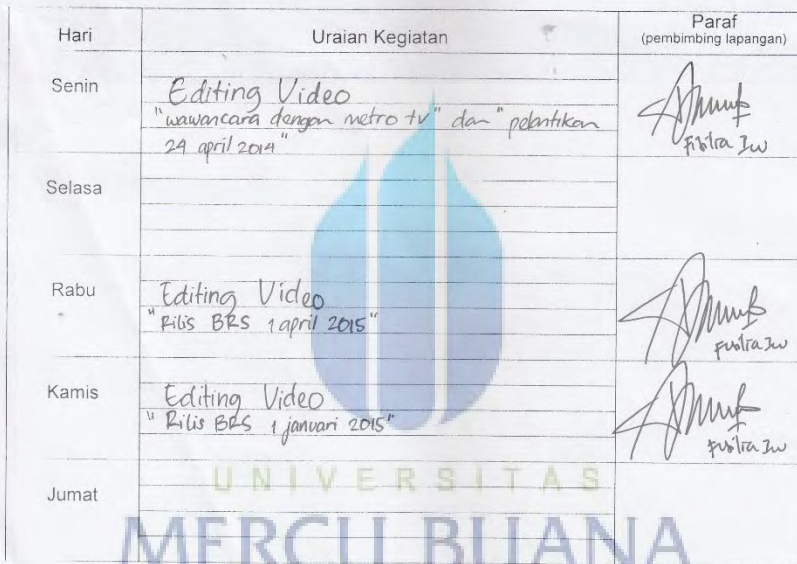 Hari Uraian Kegiatan Paraf
(pembimbing lapangan)
Senin
Editing Video
"wawancara dengan metro tv" dan "pelantikan
24 april 2014"
Selasa
Rabu
Editing Video
"Rilis BRS 1 april 2015"
Kamis
Editing Video
"Rilis BRS 1 januari 2015"
Jumat
UNIVERSITAS
MERCU BUANA